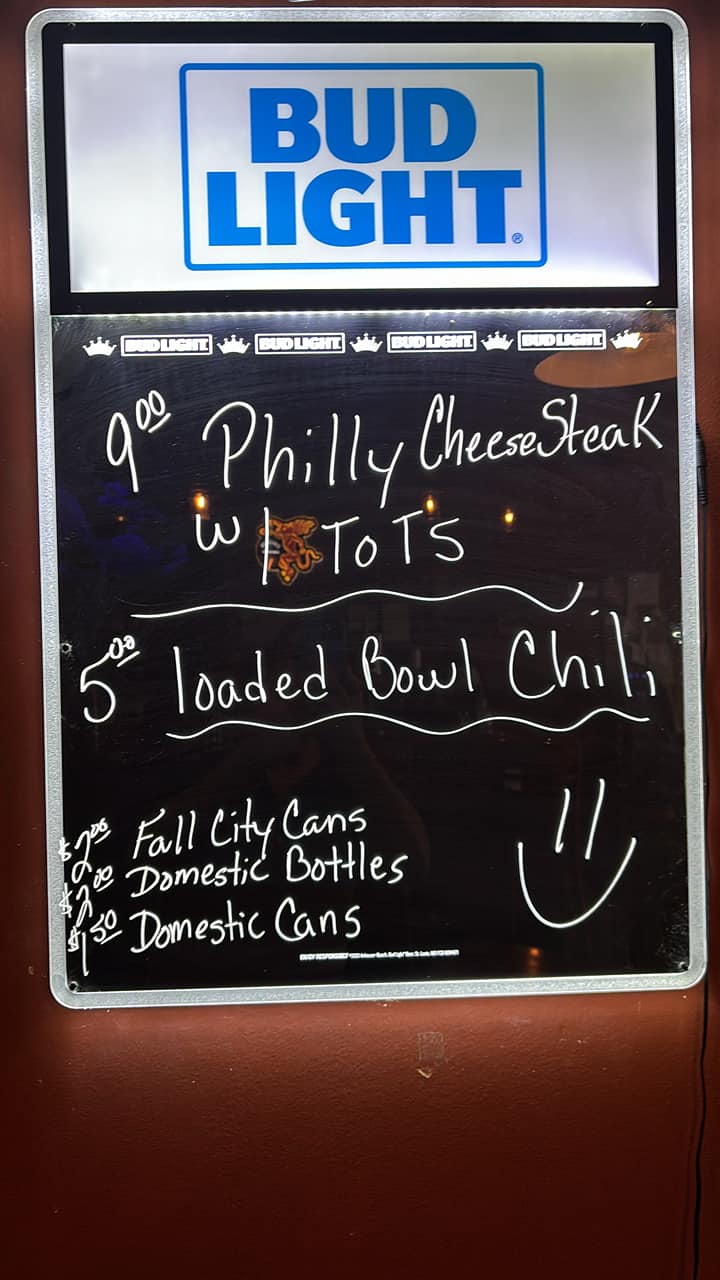 BUD
LIGHT®
BUD LIGHT BUD LIGHT BUD LIGHT BUD LIGHT
9⁰⁰ Philly CheeseSteak
w/ ToTS
5⁰⁰ loaded Bowl Chili
$2⁰⁰ Fall City Cans
$2⁰⁰ Domestic Bottles
$1⁵⁰ Domestic Cans
ENJOY RESPONSIBLY